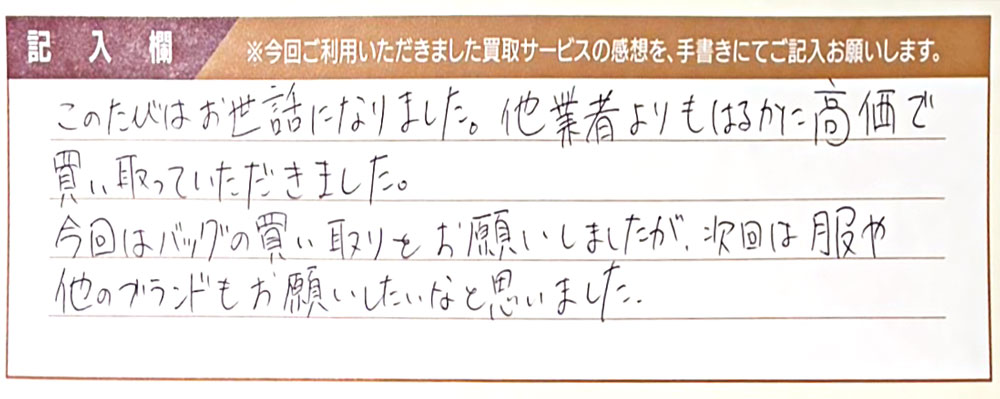 記入欄
※今回ご利用いただきました買取サービスの感想を、手書きにてご記入お願いします。
このたびはお世話になりました。他業者よりもはるかに高価で
買い取っていただきました。
今回はバッグの買い取りをお願いしましたが、次回は服や
他のブランドもお願いしたいなと思いました.